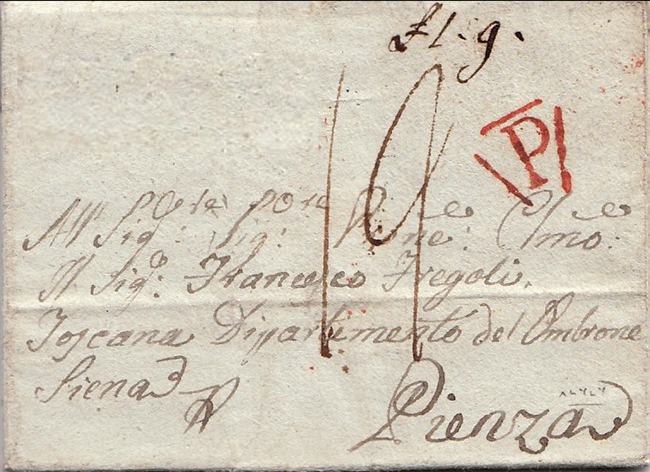 Fl. 9.
19
P
All' Sig.re Sig.re P.ne: Clmo:
Il Sig.o: Francesco Fregoli.
Toscana Dipartimento del Ombrone
Siena
Pienza